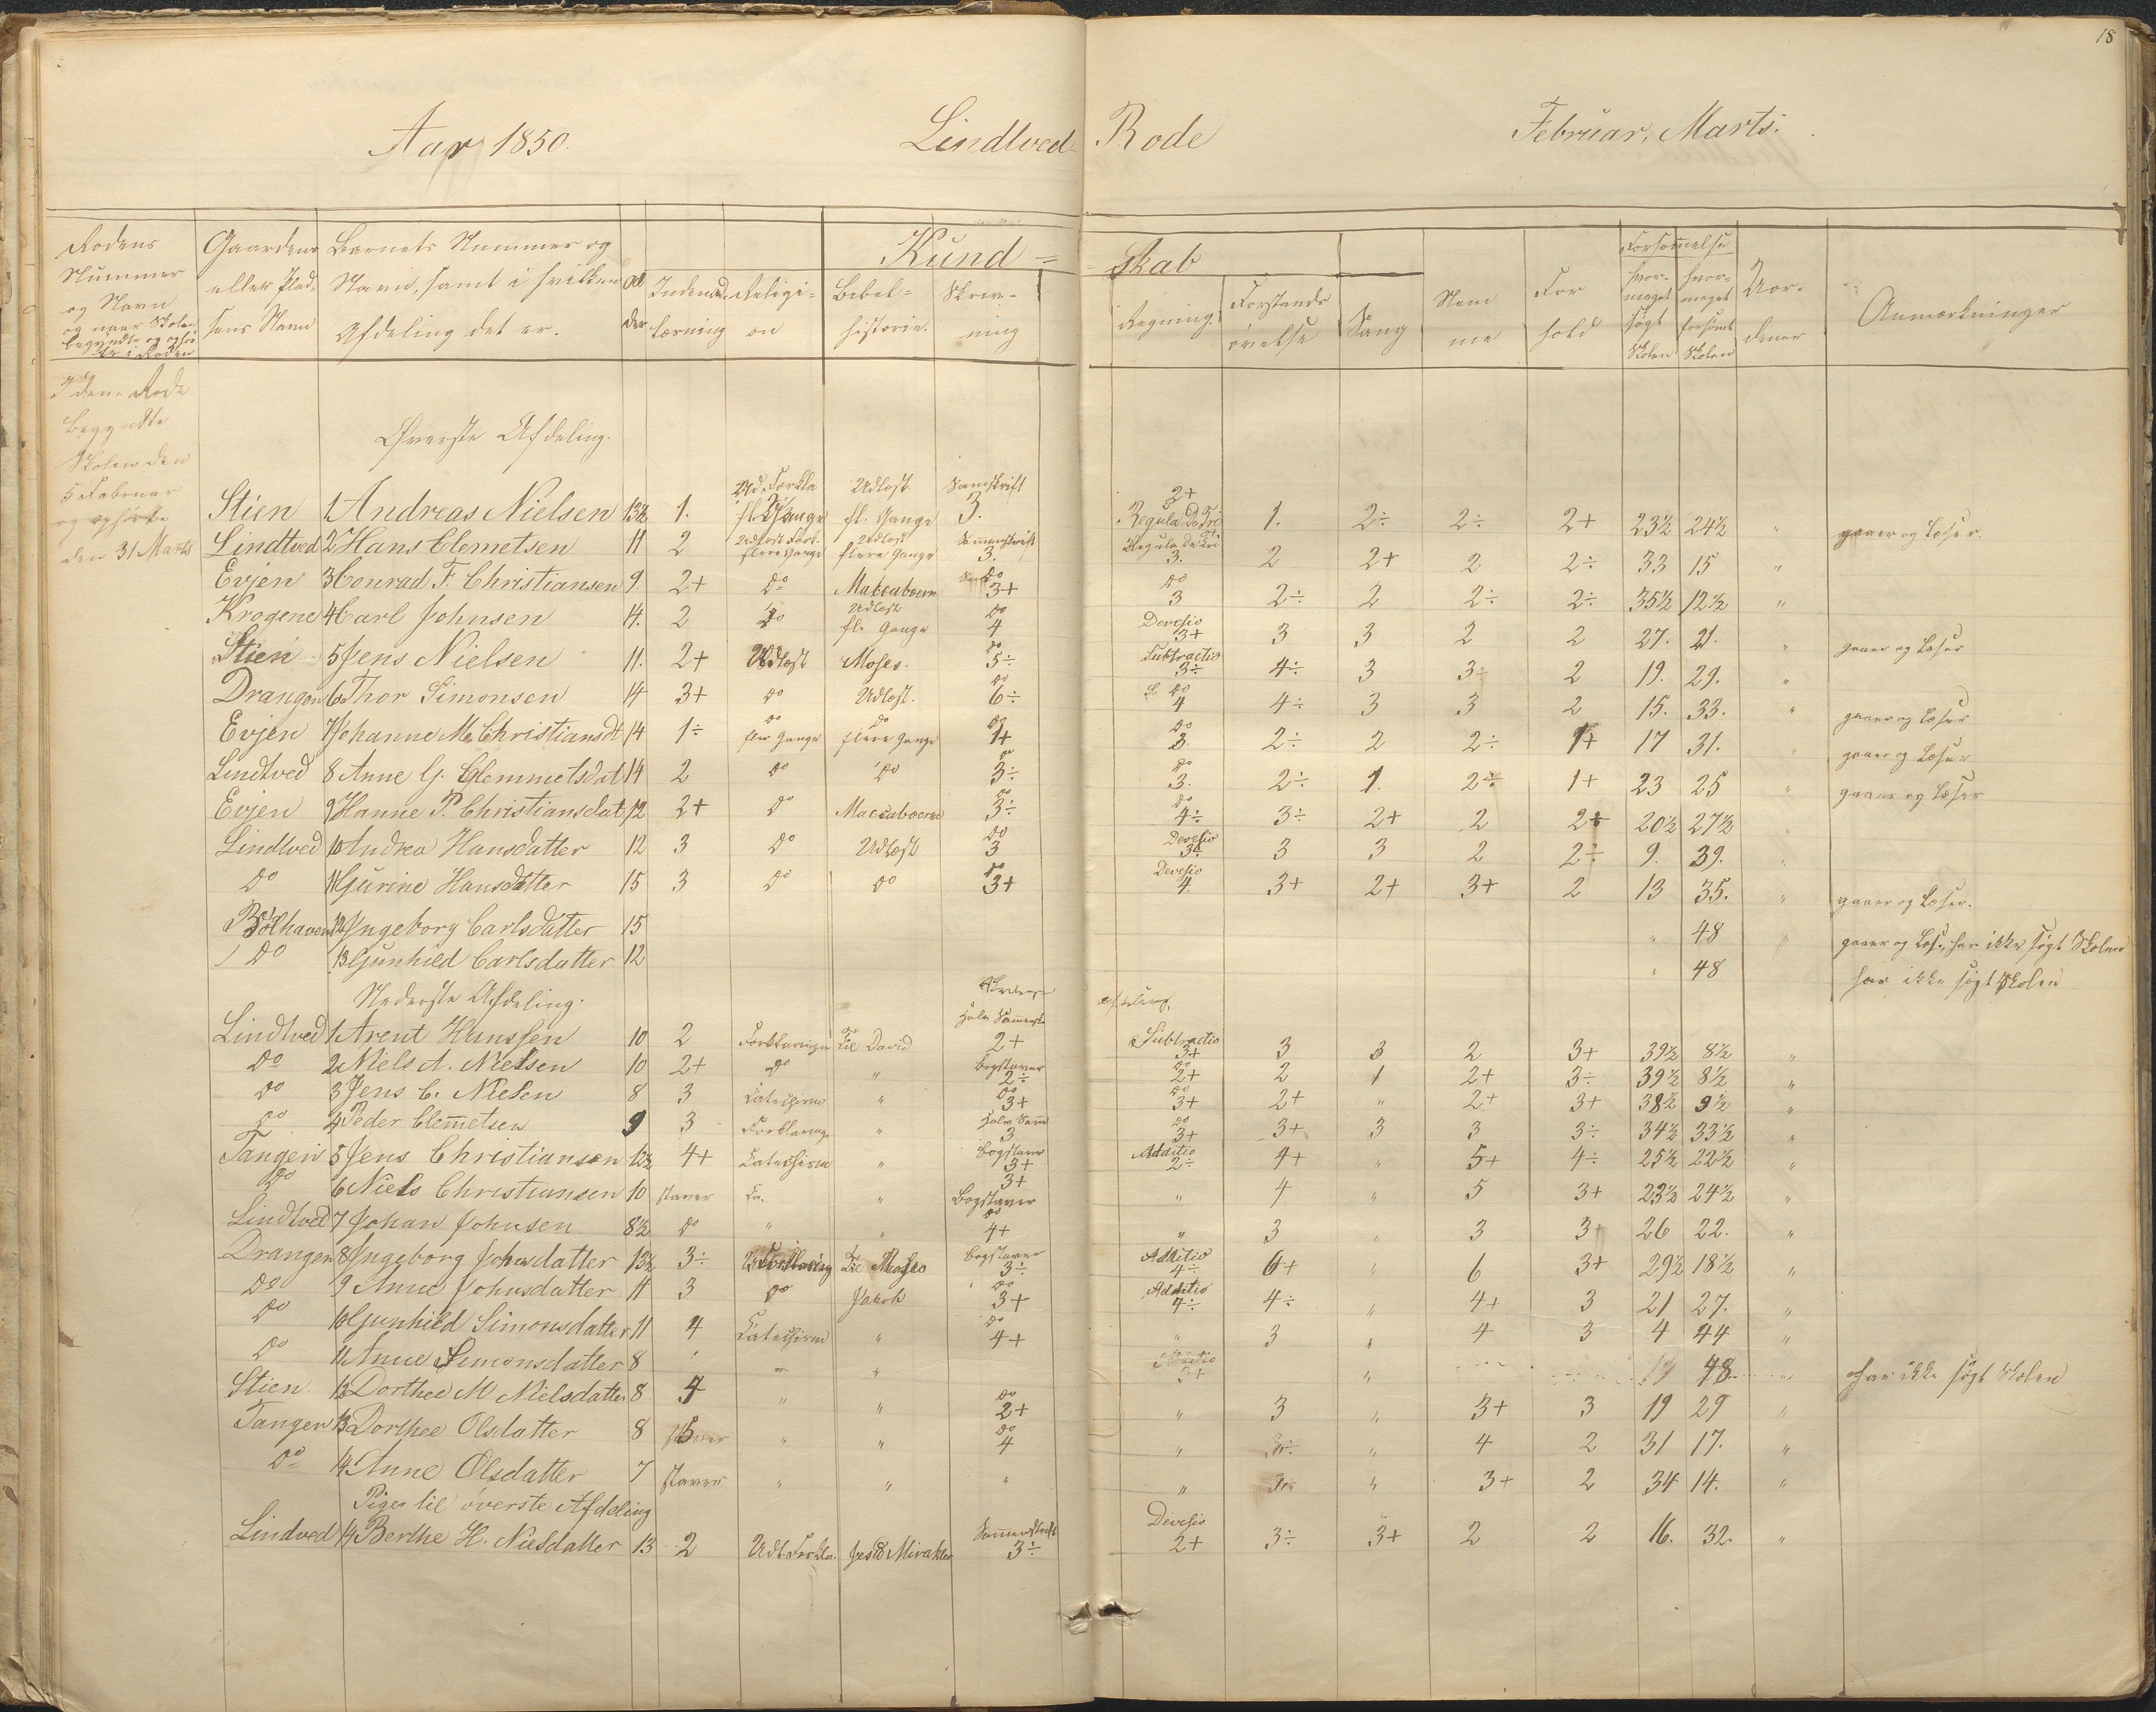 18
Aar 1850. Lindtved Rode Februar, Marts.
Rodens Nummer og Navn og naar Skolen begyndte og ophørte i Roden
Gaardens eller Pladsens Navn
Barnets Nummer og Navn, samt i hvilken Afdeling det er.
Alder
Kundskab
Indenadlæsning
Religion
Bibelhistorie.
Skrivning
Regning.
Forstandsøvelse
Sang
Nemme
Forhold
Forsømmelse
hvormeget søgt Skolen
hvormeget forsømt Skolen
Anmærkninger
I denne Rode
begyndte
Skolen den
5 Februar
og ophørte
den 31 Marts
Øverste Afdeling.
Stien 1 Andreas Nielsen 13½ 1. Ud. Forkla fl. Gange Udlæst fl. Gange Samskrift 3. 2+ Regula De Tri 1. 2÷ 2÷ 2+ 23½ 24½ " gaaer og læser.
Lindtved 2 Hans Clemetsen 11 2 Udlæst Fork. flere Gange Udlæst flere Gange Sammenskrift 3. Regula De Tri 3. 2 2+ 2 2÷ 33 15 "
Evjen 3 Conrad F. Christiansen 9. 2+ do Maccaboerne do 3+ do 3 2÷ 2 2÷ 2÷ 35½ 12½ "
Krogene 4 Carl Johnsen 14. 2 do Udlæst fl. Gange do 4 Devesio 3+ 3 3 2 2 27. 21. " gaaer og læser
Stien 5 Jens Nielsen 11. 2+ Udlæst Moses. do 5÷ Subtractio 3÷ 4÷ 3 3÷ 2 19. 29. "
Drangen 6 Thor Simonsen 14 3+ do Udlæst. do 6÷ do 4 4÷ 3 3 2 15. 33. " gaaer og læser
Evjen 7 Johanne M. Christiansdt 14 1÷ do fler Gange do flere Gange do 1+ do 3 2÷ 2 2÷ 1+ 17 31. " gaaer og læser
Lindtved 8 Anne G. Clemmetsdat 14 2 do do do 3÷ do 3. 2÷ 1. 2÷ 1+ 23 25 " gaaer og læser
Evjen 9 Hanne P. Christiansdat 12 2+ do Maccaboerne do 3÷ do 4÷ 3÷ 2+ 2 2+ 20½ 27½ "
Lindtved 10 Andrea Hansdatter 12 3 do Udlæst do 3 Devesio 3 3 3 2 2÷ 9. 39. "
do 11 Gurine Hansdatter 15 3 do do do 3+ Devesio 4. 3+ 2+ 3+ 2 13 35. " gaaer og læser.
Bølhaven 12 Ingeborg Carlsdatter 15 " 48 " gaaer og læs., har ikke søgt Skolen
do 13 Gunhild Carlsdatter 12 " 48 har ikke søgt Skolen
Nederste Afdeling.
Lindtved 1 Arent Hanssen 10 2 Forklaringen til David Halv Sammensk 2+ Subtractio 3+ 3 3 2 3+ 39½ 8½ "
do 2 Niels A. Nielsen 10 2+ do " Bogstaver 2÷ do 2+ 2 1 2+ 3÷ 39½ 8½ "
do 3 Jens C. Nielsen 8 3 Catechism " do 3+ do 3+ 2+ " 2+ 3+ 38½ 9½ "
do 4 Peder Clem̄etsen 9 3 Forklaring " Halv Sam̄ 3 do 3+ 3+ 3 3 3÷ 34½ 33½ "
Tangen 5 Jens Christiansen 12½ 4+ Catechism " Bogstaver 3+ Additio 2÷ 4+ " 5+ 4÷ 25½ 22½ "
do 6 Niels Christiansen 10 staver Ca. " 3+ Bogstaver " 4 " 5 3+ 23½ 24½ "
Lindtved 7 Johan Johnsen 8½ do " " do 4+ " 3 " 3 3+ 26 22. "
Drangen 8 Ingeborg Johnsdatter 13½ 3÷ Forklaring til Moses Bogstaver 3÷ Additio 4÷ 6+ " 6 3+ 29½ 18½ "
do 9 Anne Johnsdatter 11 3 do Jakob do 3+ Additio 4÷ 4÷ " 4+ 3 21 27. "
do 10 Gunhild Simonsdatter 11 4 Catechism " do 4+ " 3 " 4 3 4 44 "
do 11 Anne Simonsdatter 8 " 48 har ikke søgt Skolen
Stien 12 Dorthee M Nielsdatter 8 4 " " do 2+ " 3 " 3+ 3 19 29 "
Tangen 13 Dorthee Olsdatter 8 " " do 4 " " 4 2 31 17. "
do 14 Anne Olsdatter 7 staver " " " " " 3+ 2 34 14. "
Piger til øverste Afdeling
Lindved 14 Berthe H. Nielsdatter 13 2 Udl. Forkla. Jesu Mirakler Sammenskrift 3÷ Devesio 2+ 3÷ 3+ 2 2 16. 32. "